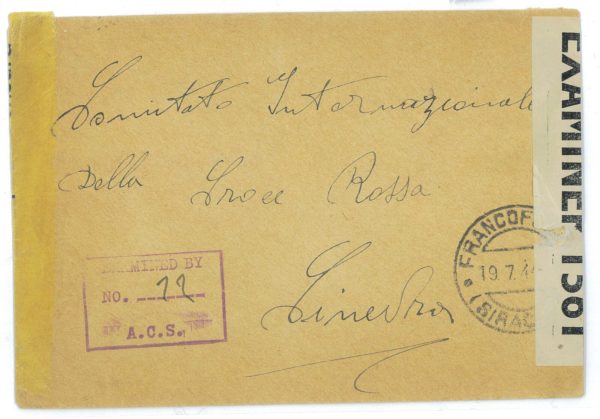 Comitato Internazionale
Della Croce Rossa
Ginevra
EXAMINED BY
NO. 22
A.C.S.
FRANCOFO
19.7.4
(SIRAC
EXAMINER 1501